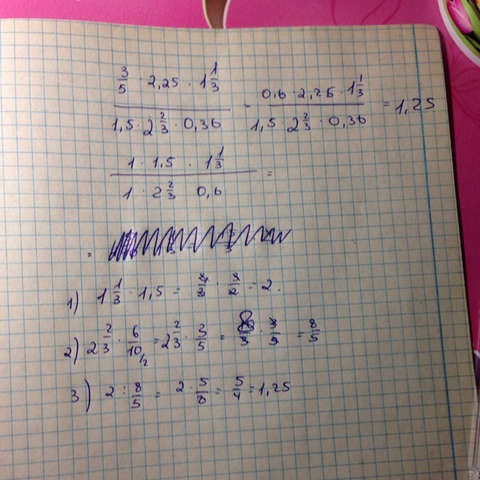 3/5 · 2,25 · 1 1/3 / 1,5 · 2 2/3 · 0,36 = 0,6 · 2,25 · 1 1/3 / 1,5 · 2 2/3 · 0,36 = 1,25
1 · 1,5 · 1 1/3 / 1 · 2 2/3 0,6 =
=
1) 1 1/3 · 1,5 = 4/3 · 3/2 = 2.
2) 2 2/3 · 6/10 = 2 2/3 · 3/5 = 8/3 · 3/5 = 8/5
3) 2 : 8/5 = 2 · 5/8 = 5/4 = 1,25